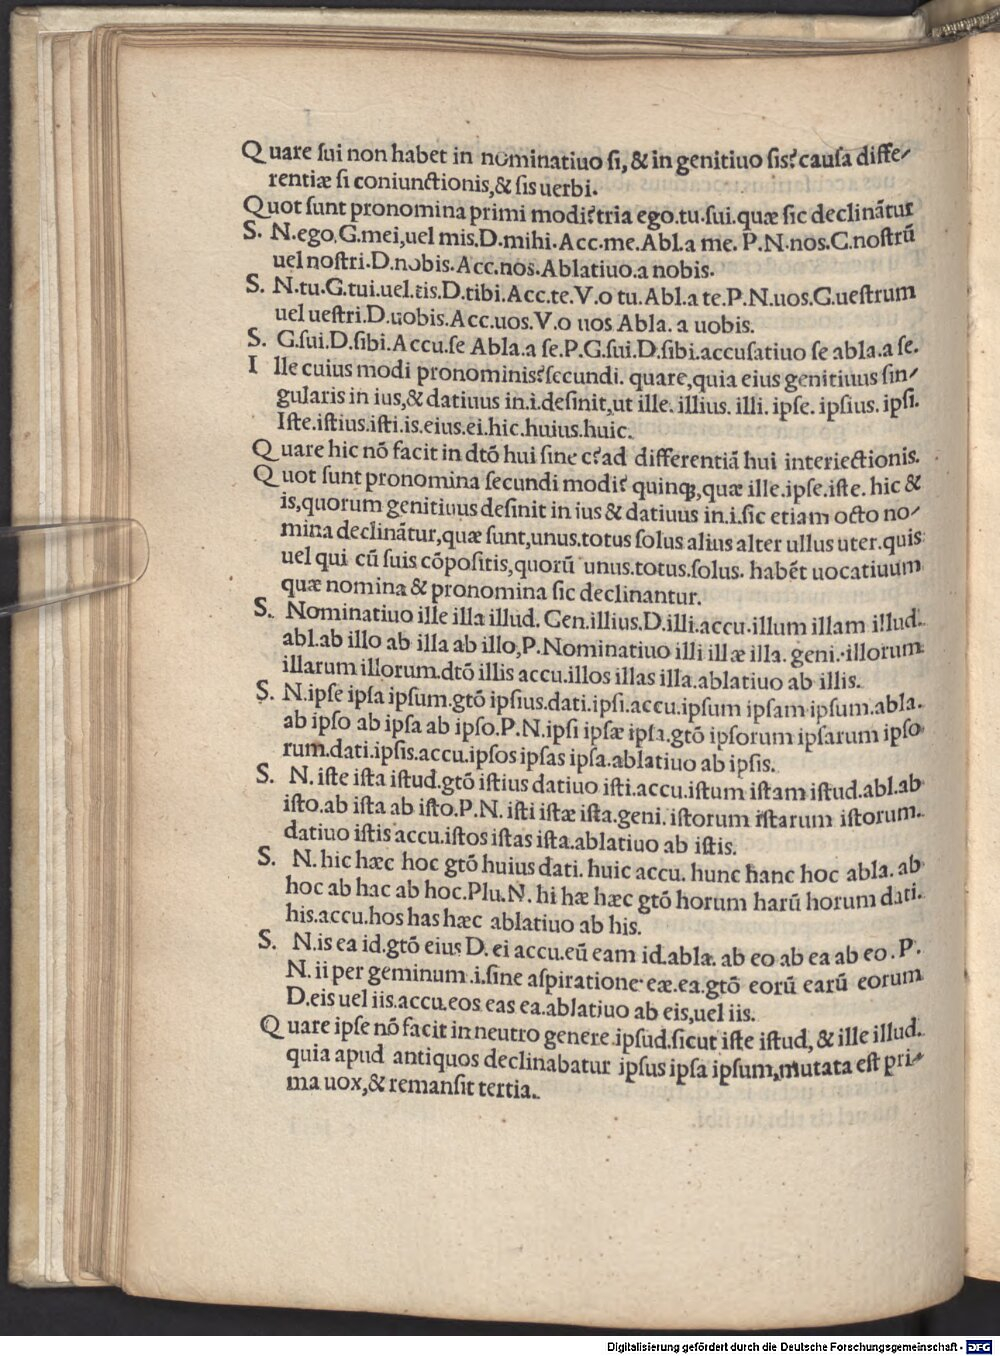 Quare ſui non habet in nominatiuo ſi, & in genitiuo ſis? cauſa diffe⸗
rentiæ ſi coniunctionis,& ſis uerbi.
Quot ſunt pronomina primi modi? tria ego.tu.ſui.quæ ſic declinãtur
S. N.ego.G.mei,uel mis.D.mihi.Acc.me.Abl.a me. P.N.nos.G.noſtrũ
uel noſtri.D.nobis.Acc.nos.Ablatiuo.a nobis.
S. N.tu.G.tui.uel.tis.D.tibi.Acc.te.V.o tu.Abl.a te.P.N.uos.G.ueſtrum
uel ueſtri.D.uobis.Acc.uos.V.o uos Abla. a uobis.
S. G.ſui.D.ſibi.Accu.ſe Abla.a ſe.P.G.ſui.D.ſibi.accuſatiuo ſe abla.a ſe.
Ille cuius modi pronominis? ſecundi. quare,quia eius genitiuus ſin⸗
gularis in ius,& datiuus in.i.deſinit,ut ille. illius. illi. ipſe. ipſius. ipſi.
Iſte.iſtius.iſti.is.eius.ei.hic.huius.huic.
Quare hic nõ facit in dtõ hui ſine c? ad differentiã hui interiectionis.
Quot ſunt pronomina ſecundi modi? quinqꝫ,quæ ille.ipſe.iſte. hic &
is,quorum genitiuus deſinit in ius & datiuus in.i.ſic etiam octo no⸗
mina declinãtur,quæ ſunt,unus.totus ſolus alius alter ullus uter.quis
uel qui cũ ſuis cõpoſitis,quorũ unus.totus.ſolus. habẽt uocatiuum
quæ nomina & pronomina ſic declinantur.
S. Nominatiuo ille illa illud. Gen.illius.D.illi.accu.illum illam illud.
abl.ab illo ab illa ab illo,P.Nominatiuo illi illæ illa. geni.illorum
illarum illorum.dtõ illis accu.illos illas illa.ablatiuo ab illis.
S. N.ipſe ipſa ipſum.gtõ ipſius.dati.ipſi.accu.ipſum ipſam ipſum.abla.
ab ipſo ab ipſa ab ipſo.P.N.ipſi ipſæ ipſa.gtõ ipſorum ipſarum ipſo
rum.dati.ipſis.accu.ipſos ipſas ipſa.ablatiuo ab ipſis.
S. N. iſte iſta iſtud.gtõ iſtius datiuo iſti.accu.iſtum iſtam iſtud.abl.ab
iſto.ab iſta ab iſto.P.N. iſti iſtæ iſta.geni. iſtorum iſtarum iſtorum.
datiuo iſtis accu.iſtos iſtas iſta.ablatiuo ab iſtis.
S. N. hic hæc hoc gtõ huius dati. huic accu. hunc hanc hoc abla. ab
hoc ab hac ab hoc.Plu.N. hi hæ hæc gtõ horum harũ horum dati.
his.accu.hos has hæc ablatiuo ab his.
S. N.is ea id.gtõ eius D. ei accu.eũ eam id.abla. ab eo ab ea ab eo. P.
N. ii per geminum .i.ſine aſpiratione eæ.ea.gtõ eorũ earũ eorum
D.eis uel iis.accu.eos eas ea.ablatiuo ab eis,uel iis.
Quare ipſe nõ facit in neutro genere ipſud.ſicut iſte iſtud, & ille illud.
quia apud antiquos declinabatur ipſus ipſa ipſum,mutata eſt pri⸗
ma uox,& remanſit tertia.
Digitalisierung gefördert durch die Deutsche Forschungsgemeinschaft - DFG